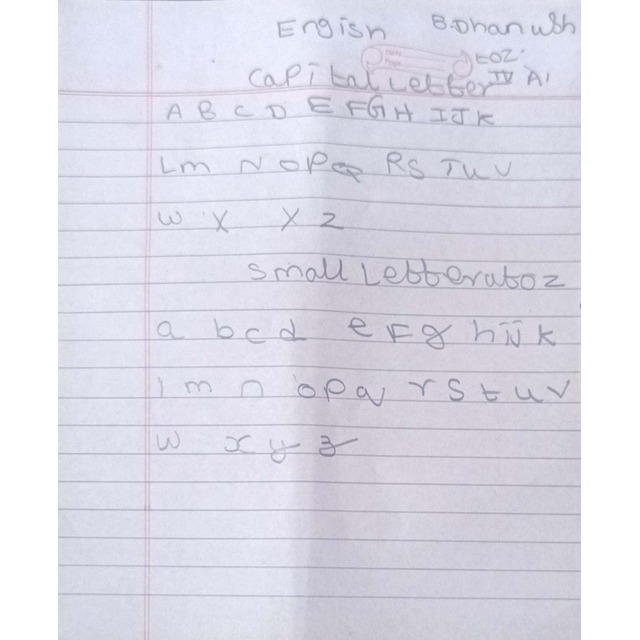 Engish B.Dhanush
toz.
Capital Letter IV A1
A B C D E F G H I J K
L m N O P Q R S T U V
W X X Z
small Letter a to z
a b c d e F g h i j k
l m n o p q r s t u v
w x y z